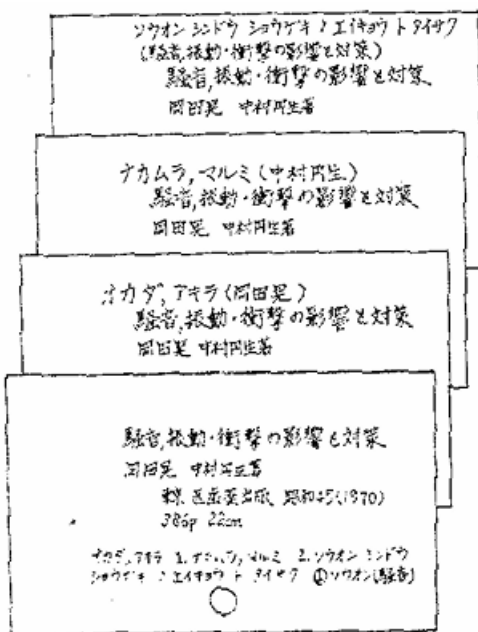 ソウオン シンドウ ショウゲキ ノ エイキョウ ト タイサク
(騒音,振動・衝撃の影響と対策)
騒音,振動・衝撃の影響と対策
岡田晃 中村円生著
ナカムラ,マルミ(中村円生)
騒音,振動・衝撃の影響と対策
岡田晃 中村円生著
オカダ,アキラ(岡田晃)
騒音,振動・衝撃の影響と対策
岡田晃 中村円生著
騒音,振動・衝撃の影響と対策
岡田晃 中村円生著
東京 医歯薬出版 昭和45(1970)
386p 22cm
オカダ,アキラ 1. ナカムラ,マルミ 2. ソウオン シンドウ
ショウゲキ ノ エイキョウ ト タイサク ①ソウオン(騒音)